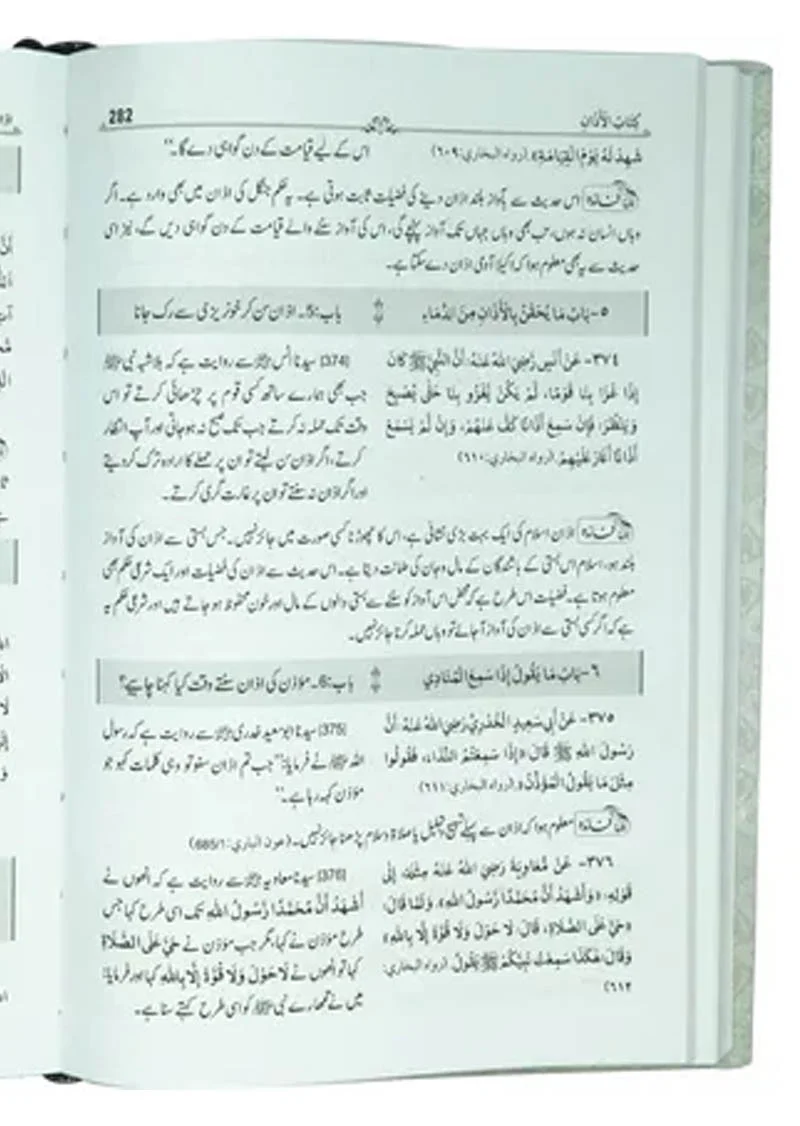 كِتَابُ الْأَذَانِ 282
شَهِدَ لَهُ يَوْمَ الْقِيَامَةِ». (رواه البخاري: ٦٠٩)
اس کے لیے قیامت کے دن گواہی دے گا۔"
فائدہ اس حدیث سے بآواز بلند اذان دینے کی فضیلت ثابت ہوتی ہے۔ یہ حکم جنگل کی اذان میں بھی وارد ہے۔ اگر
وہاں انسان نہ ہوں، تب بھی وہاں جہاں تک آواز پہنچے گی، اس کی آواز سننے والے قیامت کے دن گواہی دیں گے، نیز اس
حدیث سے یہ بھی معلوم ہوا کہ اکیلا آدمی اذان دے سکتا ہے۔
٥- بَابُ مَا يُحْقَنُ بِالْأَذَانِ مِنَ الدِّمَاءِ
باب:5۔ اذان سن کر خونریزی سے رک جانا
٣٧٤- عَنْ أَنَسٍ رَضِيَ اللهُ عَنْهُ: أَنَّ النَّبِيَّ ﷺ كَانَ
إِذَا غَزَا بِنَا قَوْمًا، لَمْ يَكُنْ يَغْزُو بِنَا حَتَّى يُصْبِحَ
وَيَنْظُرَ، فَإِنْ سَمِعَ أَذَانًا كَفَّ عَنْهُمْ، وَإِنْ لَمْ يَسْمَعْ
أَذَانًا أَغَارَ عَلَيْهِمْ. (رواه البخاري: ٦١٠)
(374) سیدنا انس رضی اللہ عنہ سے روایت ہے کہ بلاشبہ نبی ﷺ
جب بھی ہمارے ساتھ کسی قوم پر چڑھائی کرتے تو اس
وقت تک حملہ نہ کرتے جب تک صبح نہ ہو جاتی اور آپ انتظار
کرتے، اگر اذان سن لیتے تو ان پر حملے کا ارادہ ترک کر دیتے
اور اگر اذان نہ سنتے تو ان پر غارت گری کرتے۔
فائدہ اذان اسلام کی ایک بہت بڑی نشانی ہے، اس کا چھوڑنا کسی صورت میں جائز نہیں۔ جس بستی سے اذان کی آواز
بلند ہو، اسلام اس بستی کے باشندگان کے مال و جان کی ضمانت دیتا ہے۔ اس حدیث سے اذان کی فضیلت اور ایک شرعی حکم بھی
معلوم ہوتا ہے۔ فضیلت اس طرح ہے کہ محض اس آواز کو سننے سے بستی والوں کے مال اور خون محفوظ ہو جاتے ہیں اور شرعی حکم یہ
ہے کہ اگر کسی بستی سے اذان کی آواز آ جائے تو وہاں حملہ کرنا جائز نہیں۔
٦- بَابُ مَا يَقُولُ إِذَا سَمِعَ الْمُنَادِي
باب:6۔ مؤذن کی اذان سنتے وقت کیا کہنا چاہیے؟
٣٧٥- عَنْ أَبِي سَعِيدٍ الْخُدْرِيِّ رَضِيَ اللهُ عَنْهُ: أَنَّ
رَسُولَ اللهِ ﷺ قَالَ: «إِذَا سَمِعْتُمُ النِّدَاءَ، فَقُولُوا
مِثْلَ مَا يَقُولُ الْمُؤَذِّنُ». (رواه البخاري: ٦١١)
(375) سیدنا ابو سعید خدری رضی اللہ عنہ سے روایت ہے کہ رسول
اللہ ﷺ نے فرمایا: "جب تم اذان سنو تو وہی کلمات کہو جو
مؤذن کہہ رہا ہے۔"
فائدہ معلوم ہوا کہ اذان سے پہلے تسبیح و تہلیل یا صلاۃ و سلام پڑھنا جائز نہیں۔ (عون الباري: 685/1)
٣٧٦- عَنْ مُعَاوِيَةَ رَضِيَ اللهُ عَنْهُ مِثْلَهُ، إِلَى
قَوْلِهِ: «وَأَشْهَدُ أَنَّ مُحَمَّدًا رَسُولُ اللهِ». وَلَمَّا قَالَ:
«حَيَّ عَلَى الصَّلَاةِ»، قَالَ: لَا حَوْلَ وَلَا قُوَّةَ إِلَّا بِاللهِ»
وَقَالَ: هَكَذَا سَمِعْتُ نَبِيَّكُمْ ﷺ يَقُولُ. (رواه البخاري:
٦١٢)
(376) سیدنا معاویہ رضی اللہ عنہ سے روایت ہے کہ انھوں نے
أَشْهَدُ أَنَّ مُحَمَّدًا رَّسُولُ اللهِ تک اسی طرح کہا جس
طرح مؤذن نے کہا، مگر جب مؤذن نے حَيَّ عَلَى الصَّلَاةِ
کہا تو انھوں نے لَا حَوْلَ وَلَا قُوَّةَ إِلَّا بِاللهِ کہا اور فرمایا:
میں نے تمھارے نبی ﷺ کو اسی طرح کہتے سنا ہے۔